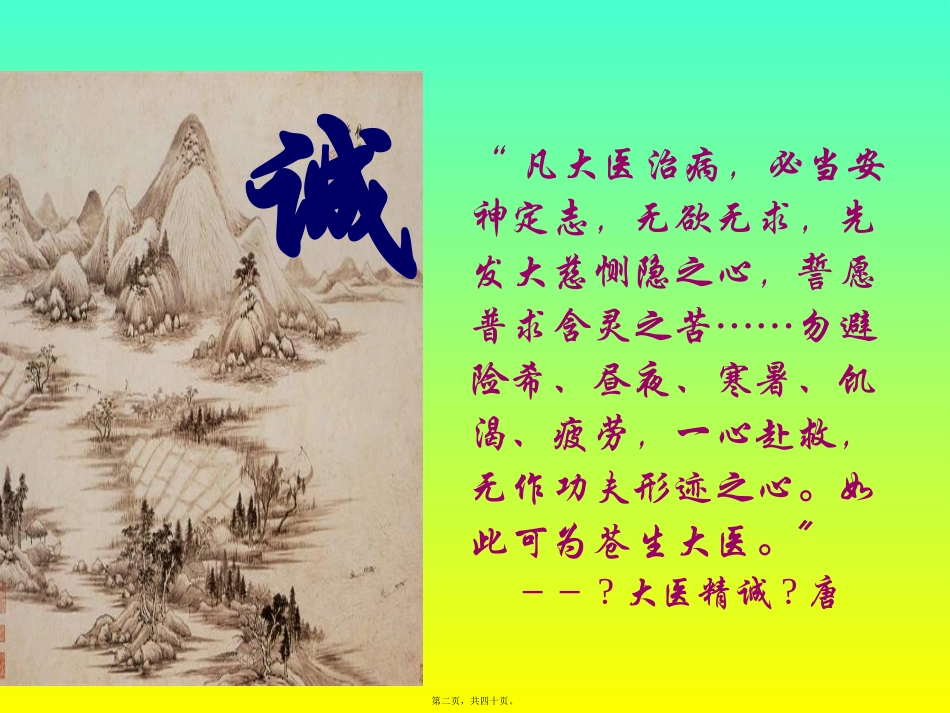 诚
“凡大医治病，必当安
神定志，无欲无求，先
发大慈恻隐之心，誓愿
普求含灵之苦……勿避
险希、昼夜、寒暑、饥
渴、疲劳，一心赴救，
无作功夫形迹之心。如
此可为苍生大医。”
－－？大医精诚？唐
第二页，共四十页。